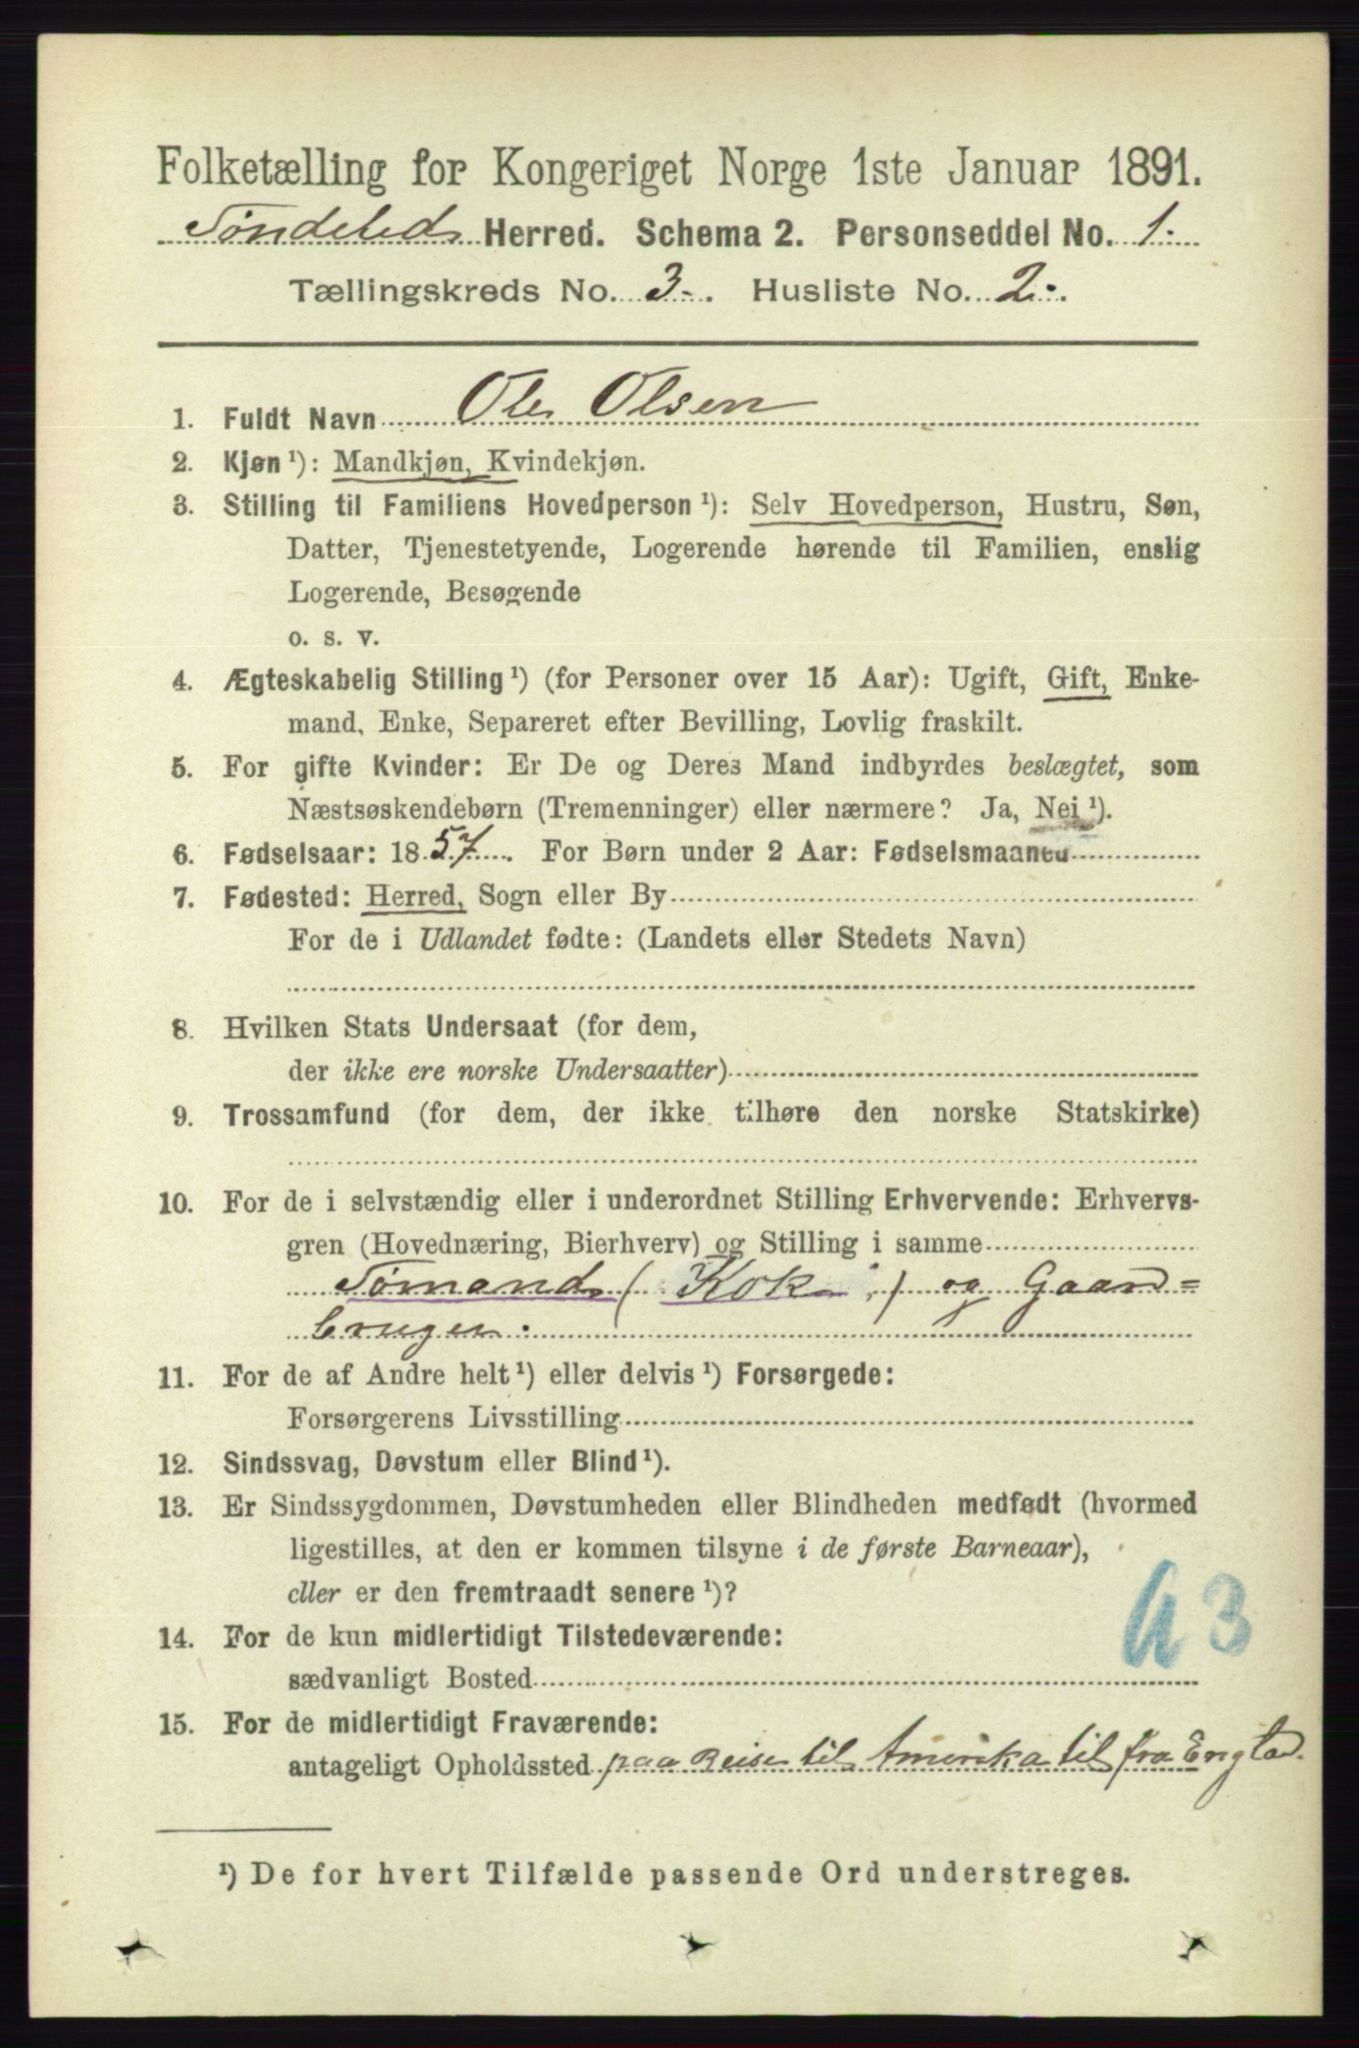 Folketælling for Kongeriget Norge 1ste Januar 1891.
Søndeled Herred. Schema 2. Personseddel No. 1.
Tællingskreds No. 3. Husliste No. 2.
1. Fuldt Navn Ole Olsen
2. Kjøn ¹): Mandkjøn, Kvindekjøn.
3. Stilling til Familiens Hovedperson ¹): Selv Hovedperson, Hustru, Søn,
Datter, Tjenestetyende, Logerende hørende til Familien, enslig
Logerende, Besøgende
o. s. v.
4. Ægteskabelig Stilling ¹) (for Personer over 15 Aar): Ugift, Gift, Enke-
mand, Enke, Separeret efter Bevilling, Lovlig fraskilt.
5. For gifte Kvinder: Er De og Deres Mand indbyrdes beslægtet, som
Næstsøskendebørn (Tremenninger) eller nærmere? Ja, Nei ¹).
6. Fødselsaar: 1857. For Børn under 2 Aar: Fødselsmaaned
7. Fødested: Herred, Sogn eller By
For de i Udlandet fødte: (Landets eller Stedets Navn)
8. Hvilken Stats Undersaat (for dem,
der ikke ere norske Undersaatter)
9. Trossamfund (for dem, der ikke tilhøre den norske Statskirke)
10. For de i selvstændig eller i underordnet Stilling Erhvervende: Erhvervs-
gren (Hovednæring, Bierhverv) og Stilling i samme
Sømand ( Kok ) og Gaard=
bruger.
11. For de af Andre helt ¹) eller delvis ¹) Forsørgede:
Forsørgerens Livsstilling
12. Sindssvag, Døvstum eller Blind ¹).
13. Er Sindssygdommen, Døvstumheden eller Blindheden medfødt (hvormed
ligestilles, at den er kommen tilsyne i de første Barneaar),
eller er den fremtraadt senere ¹)?
14. For de kun midlertidigt Tilstedeværende:
sædvanligt Bosted
15. For de midlertidigt Fraværende:
antageligt Opholdssted paa Reise til Amerika til fra England.
¹) De for hvert Tilfælde passende Ord understreges.